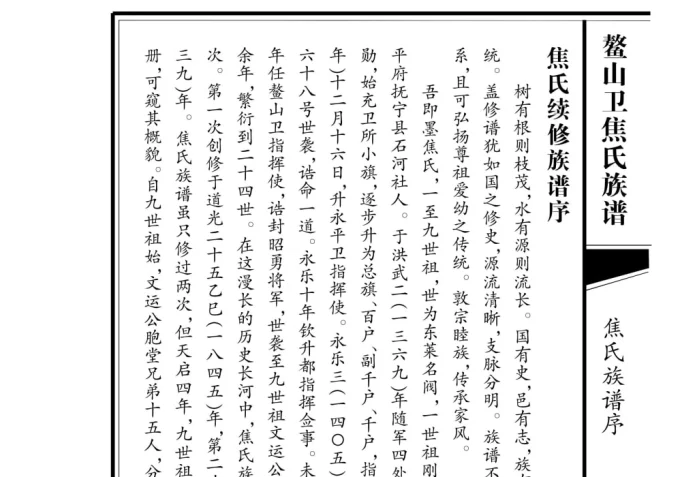 鳌山卫焦氏族谱
焦氏族谱序
焦氏续修族谱序
树有根则枝茂，水有源则流长。国有史，邑有志，族
统。盖修谱犹如国之修史，源流清晰，支脉分明。族谱不
系，且可弘扬尊祖爱幼之传统。敦宗睦族，传承家风。
吾即墨焦氏，一至九世祖，世为东莱名阀，一世祖刚
平府抚宁县石河社人。于洪武二(一三六九)年随军四处
勋，始充卫所小旗，逐步升为总旗、百户、副千户、千户，指
年)十二月十六日，升永平卫指挥使。永乐三(一四〇五)
六十八号世袭，诰命一道。永乐十年钦升都指挥佥事。未
年任鳌山卫指挥使，诰封昭勇将军，世袭至九世祖文运公
余年，繁衍到二十四世。在这漫长的历史长河中，焦氏族
次。第一次创修于道光二十五乙巳(一八四五)年，第二
三九)年。焦氏族谱虽只修过两次，但天启四年，九世祖
册，可窥其概貌。自九世祖始，文运公胞堂兄弟十五人，分